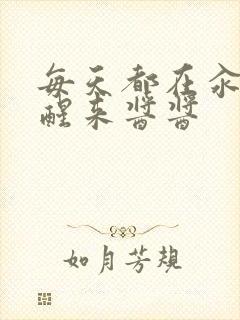 每天都在汆
醒来酱酱
如月芳规